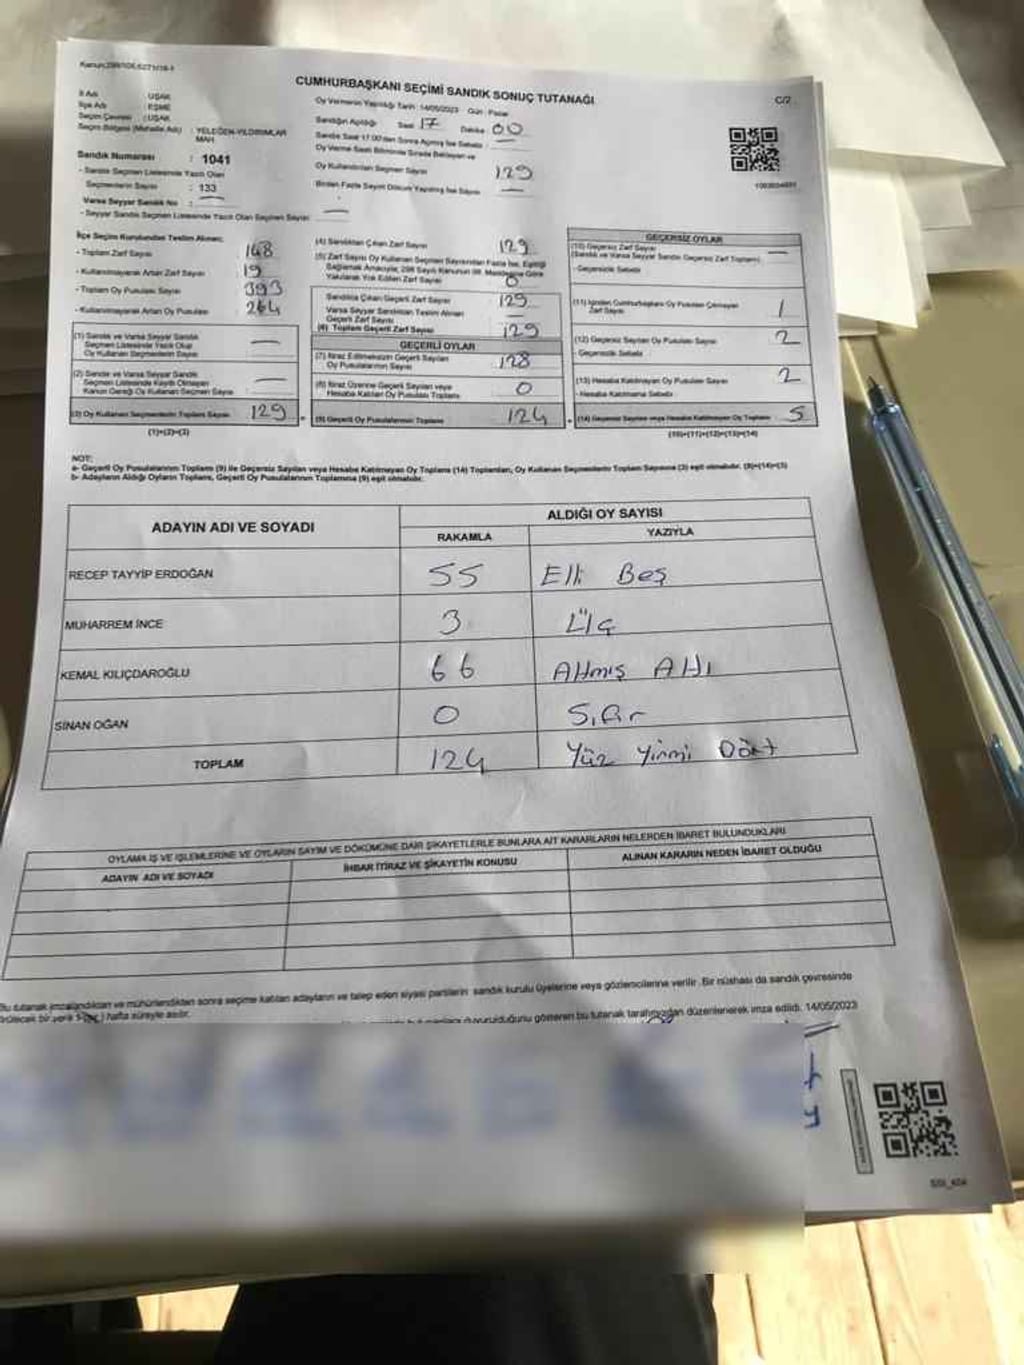 CUMHURBAŞKANI SEÇİMİ SANDIK SONUÇ TUTANAĞI
C/2
Oy Vermenin Yapıldığı Tarih : 14/05/2023 Gün : Pazar
İl Adı : UŞAK
İlçe Adı : EŞME
Seçim Çevresi : UŞAK
Seçim Bölgesi (Mahalle Adı) : YELEĞEN-YILDIRIMLAR MAH.
Sandık Numarası : 1041
- Sandık Seçmen Listesinde Yazılı Olan
Seçmenlerin Sayısı : 133
Varsa Seyyar Sandık No : —
- Seyyar Sandık Seçmen Listesinde Yazılı Olan Seçmen Sayısı : —
Sandığın Açıldığı Saat 17 Dakika 00
Sandık Saat 17.00'den Sonra Açılmış İse Sebebi : —
Oy Verme Saati Bitiminde Sırada Bekleyen ve
Oy Kullandırılan Seçmen Sayısı 129
Birden Fazla Sayım Döküm Yapılmış İse Sayısı : —
İlçe Seçim Kurulundan Teslim Alınan;
- Toplam Zarf Sayısı : 148
- Kullanılmayarak Artan Zarf Sayısı : 19
- Toplam Oy Pusulası Sayısı : 393
- Kullanılmayarak Artan Oy Pusulası : 264
(1) Sandık ve Varsa Seyyar Sandık
Seçmen Listesinde Yazılı Olup
Oy Kullanan Seçmenlerin Sayısı —
(2) Sandık ve Varsa Seyyar Sandık
Seçmen Listesinde Kayıtlı Olmayan
Kanun Gereği Oy Kullanan Seçmen Sayısı —
(3) Oy Kullanan Seçmenlerin Toplam Sayısı 129
(1)+(2)=(3)
(4) Sandıktan Çıkan Zarf Sayısı 129
(5) Zarf Sayısı Oy Kullanan Seçmen Sayısından Fazla İse, Eşitliği
Sağlamak Amacıyla, 298 Sayılı Kanunun 98. Maddesine Göre
Yakılarak Yok Edilen Zarf Sayısı 0
Sandıkta Çıkan Geçerli Zarf Sayısı 129
Varsa Seyyar Sandıktan Teslim Alınan
Geçerli Zarf Sayısı —
(6) Toplam Geçerli Zarf Sayısı 129
GEÇERLİ OYLAR
(7) İtiraz Edilmeksizin Geçerli Sayılan
Oy Pusulalarının Sayısı 128
(8) İtiraz Üzerine Geçerli Sayılan veya
Hesaba Katılan Oy Pusulası Toplamı 0
(9) Geçerli Oy Pusulalarının Toplamı 124
GEÇERSİZ OYLAR
(10) Geçersiz Zarf Sayısı
(Sandık ve Varsa Seyyar Sandık Geçersiz Zarf Toplamı) —
- Geçersizlik Sebebi
(11) İçinden Cumhurbaşkanı Oy Pusulası Çıkmayan
Zarf Sayısı 1
(12) Geçersiz Sayılan Oy Pusulası Sayısı 2
- Geçersizlik Sebebi
(13) Hesaba Katılmayan Oy Pusulası Sayısı 2
- Hesaba Katılmama Sebebi
(14) Geçersiz Sayılan veya Hesaba Katılmayan Oy Toplamı 5
(10)+(11)+(12)+(13)=(14)
NOT:
a- Geçerli Oy Pusulalarının Toplamı (9) ile Geçersiz Sayılan veya Hesaba Katılmayan Oy Toplamı (14) Toplamları, Oy Kullanan Seçmenlerin Toplam Sayısına (3) eşit olmalıdır. (9)+(14)=(3)
b- Adayların Aldığı Oyların Toplamı, Geçerli Oy Pusulalarının Toplamına (9) eşit olmalıdır.
ADAYIN ADI VE SOYADI ALDIĞI OY SAYISI
RAKAMLA YAZIYLA
RECEP TAYYİP ERDOĞAN 55 Elli Beş
MUHARREM İNCE 3 Üç
KEMAL KILIÇDAROĞLU 66 Altmış Altı
SİNAN OĞAN 0 Sıfır
TOPLAM 124 Yüz Yirmi Dört
OYLAMA İŞ VE İŞLEMLERİNE VE OYLARIN SAYIM VE DÖKÜMÜNE DAİR ŞİKAYETLERLE BUNLARA AİT KARARLARIN NELERDEN İBARET BULUNDUKLARI
ADAYIN ADI VE SOYADI İHBAR İTİRAZ VE ŞİKAYETİN KONUSU ALINAN KARARIN NEDEN İBARET OLDUĞU
Bu tutanak imzalandıktan ve mühürlendikten sonra seçime katılan adayların ve talep eden siyasi partilerin sandık kurulu üyelerine veya gözlemcilerine verilir. Bir nüshası da sandık çevresinde
hafta süreyle asılır.
duyurulduğunu gösteren bu tutanak tarafımızdan düzenlenerek imza edildi. 14/05/2023